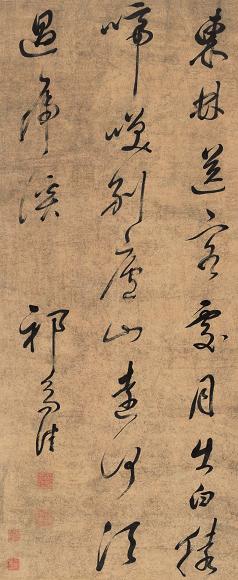 東林送客處月出白猿
啼咲別廬山遠何須
過虎溪 祁豸佳